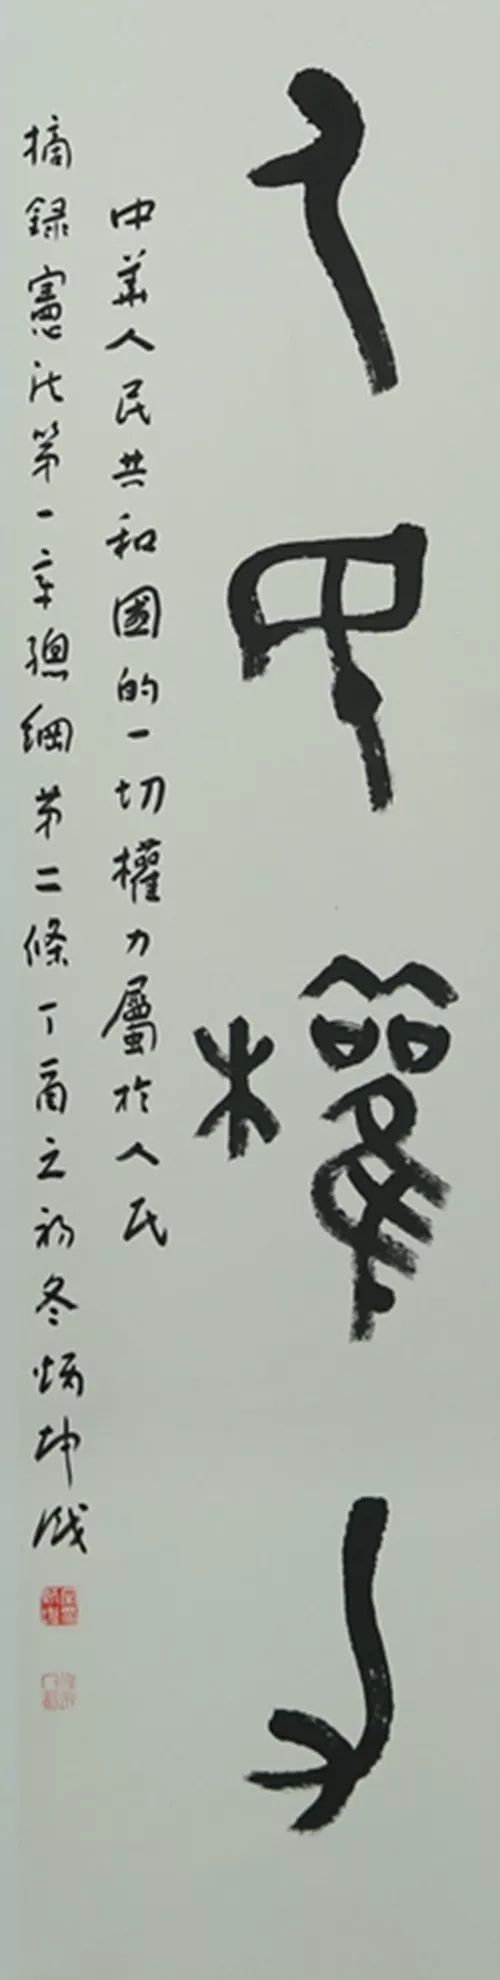 人民權力
中華人民共和國的一切權力屬於人民
摘録憲法第一章總綱第二條丁酉之初冬炳坤